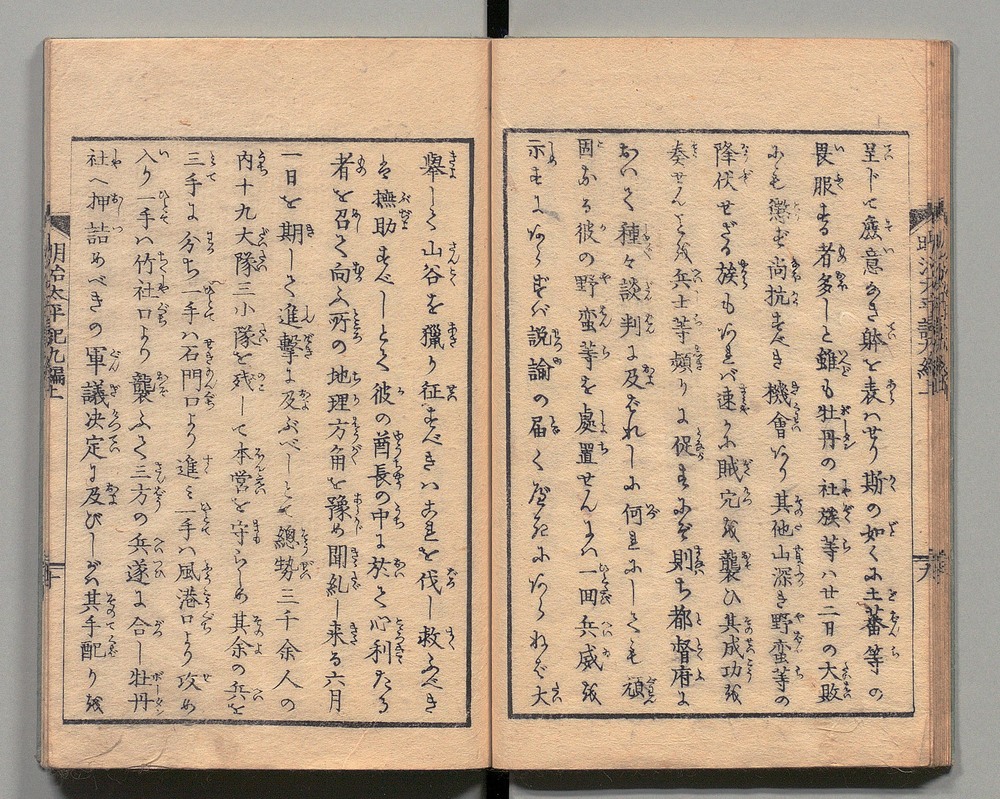 呈して應意なき躰を表ハせり斯の如くに土蕃等の
畏服する者多しと雖も牡丹の社族等ハ廿二日の大敗
にも懲ず尚抗すべき機會あり其他山深き野蛮等の
降伏せざる族もあれバ速かに賊穴を襲ひ其成功を
奏せんことを兵士等頻りに促すにぞ則ち都督府に
おいて種々談判に及ばれしに何れにしても頑
固なる彼の野蛮等を處置せんにハ一回兵威を
示すにあらずバ説諭の届く居たにあらねバ大
擧して山谷を獵り征すべきハこれを伐し救ふべき
ハ撫助すべしとて彼の酋長の中に於て心利たる
者を召て向ふ所の地理方角を豫め聞糺し来る六月
一日を期して進撃に及ぶべしとて總勢三千余人の
内十九大隊三小隊を残して本營を守らしめ其余の兵を
三手に分ち一手ハ石門口より進ミ一手ハ風港口より攻め
入り一手ハ竹社口より襲ふて三方の兵遂に合し牡丹
社へ押詰めべきの軍議決定に及びしが其手配りを
明治太平記九編上